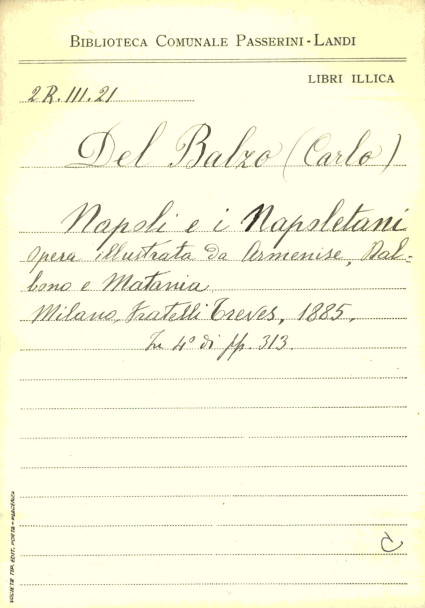 BIBLIOTECA COMUNALE PASSERINI-LANDI
LIBRI ILLICA
2R.III.21
Del Balzo (Carlo)
Napoli e i Napoletani
opera illustrata da Armenise, Dal-
bono e Matania
Milano, Fratelli Treves, 1885.
In 4° di pp. 313.
C
SOCIETÀ TIP. EDIT. PORTA - PIACENZA